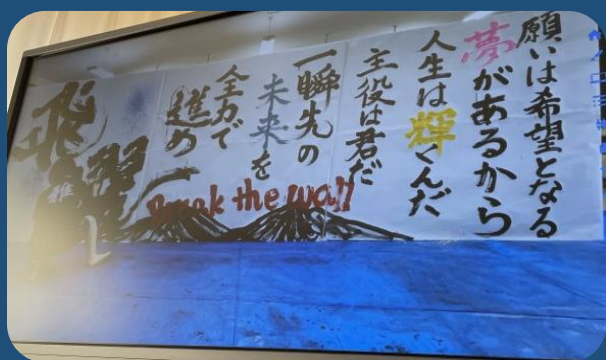 願いは希望となる
夢があるから
人生は輝くんだ
主役は君だ
一瞬先の
未来を
全力で
進め
飛翔
Break the wall